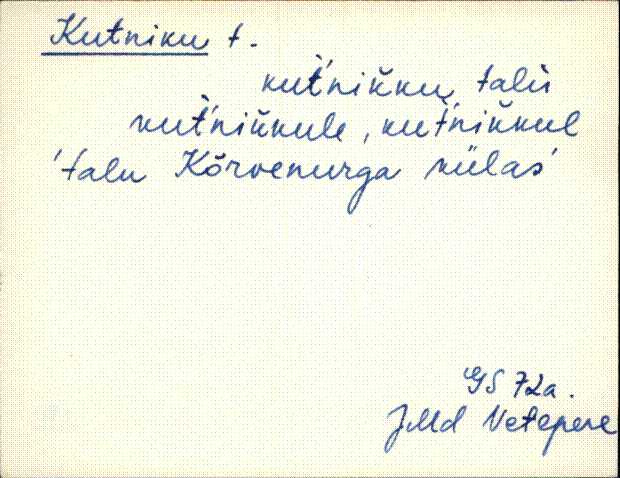 Kutniku t.
kut̀'nik̆ku, talù
kut̀'nik̆kule, kut̀'nik̆kul
'talu Kõrvenurga külas'
72a.
JMd Vetepere